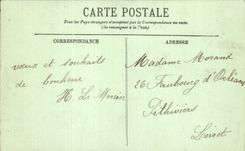 CARTE POSTALE
Tous les Pays étrangers n'acceptent pas la Correspondance au recto.
(Se renseigner à la Poste)
CORRESPONDANCE
ADRESSE
vœux et souhaits
de bonheur
H. Le Mercier
Madame Morand
26 Faubourg d'Orléans
Pithiviers
Loiret